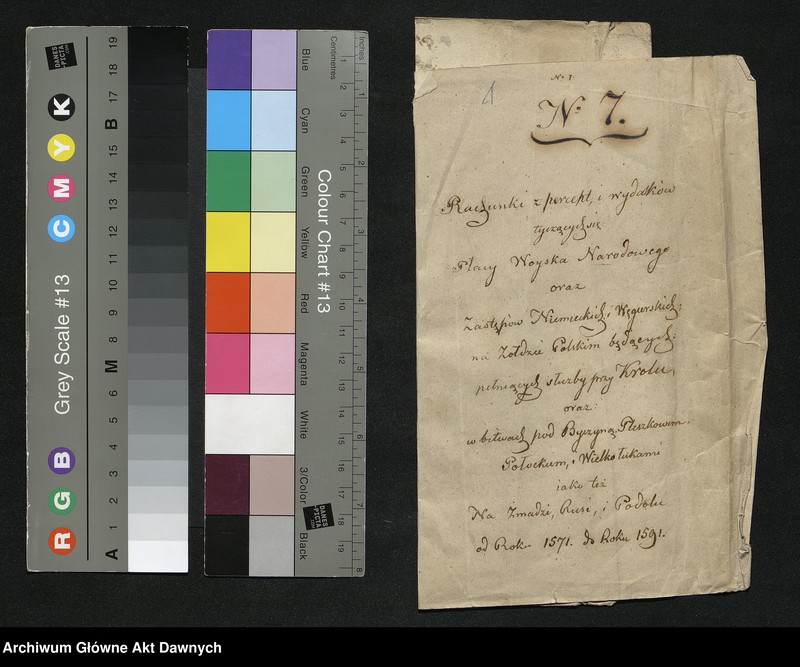 DANES-PICTA.COM
Grey Scale #13
R G B C M Y K
A 1 2 3 4 5 6 M 8 9 10 11 12 13 14 15 B 17 18 19
Colour Chart #13
Blue Cyan Green Yellow Red Magenta White 3/Color Black
Inches
1 2 3 4 5 6 7 8
Centimetres
1 2 3 4 5 6 7 8 9 10 11 12 13 14 15 16 17 18 19
DANES-PICTA.COM
1
No 7
No 7.
Rachunki z percept, i wydatków
tyczących się
Płacy Woyska Narodowego
oraz
Zastępow Niemieckich i Węgierskich;
na Żołdzie Polskim będących:
pełniących służby przy Krolu,
oraz:
w bitwach pod Byczyną, Pleszkowem,
Połockiem, i Wielko łukami
iako też
Na Żmudzi, Rusi, i Podolu
od Roku 1571. do Roku 1591.
Archiwum Główne Akt Dawnych